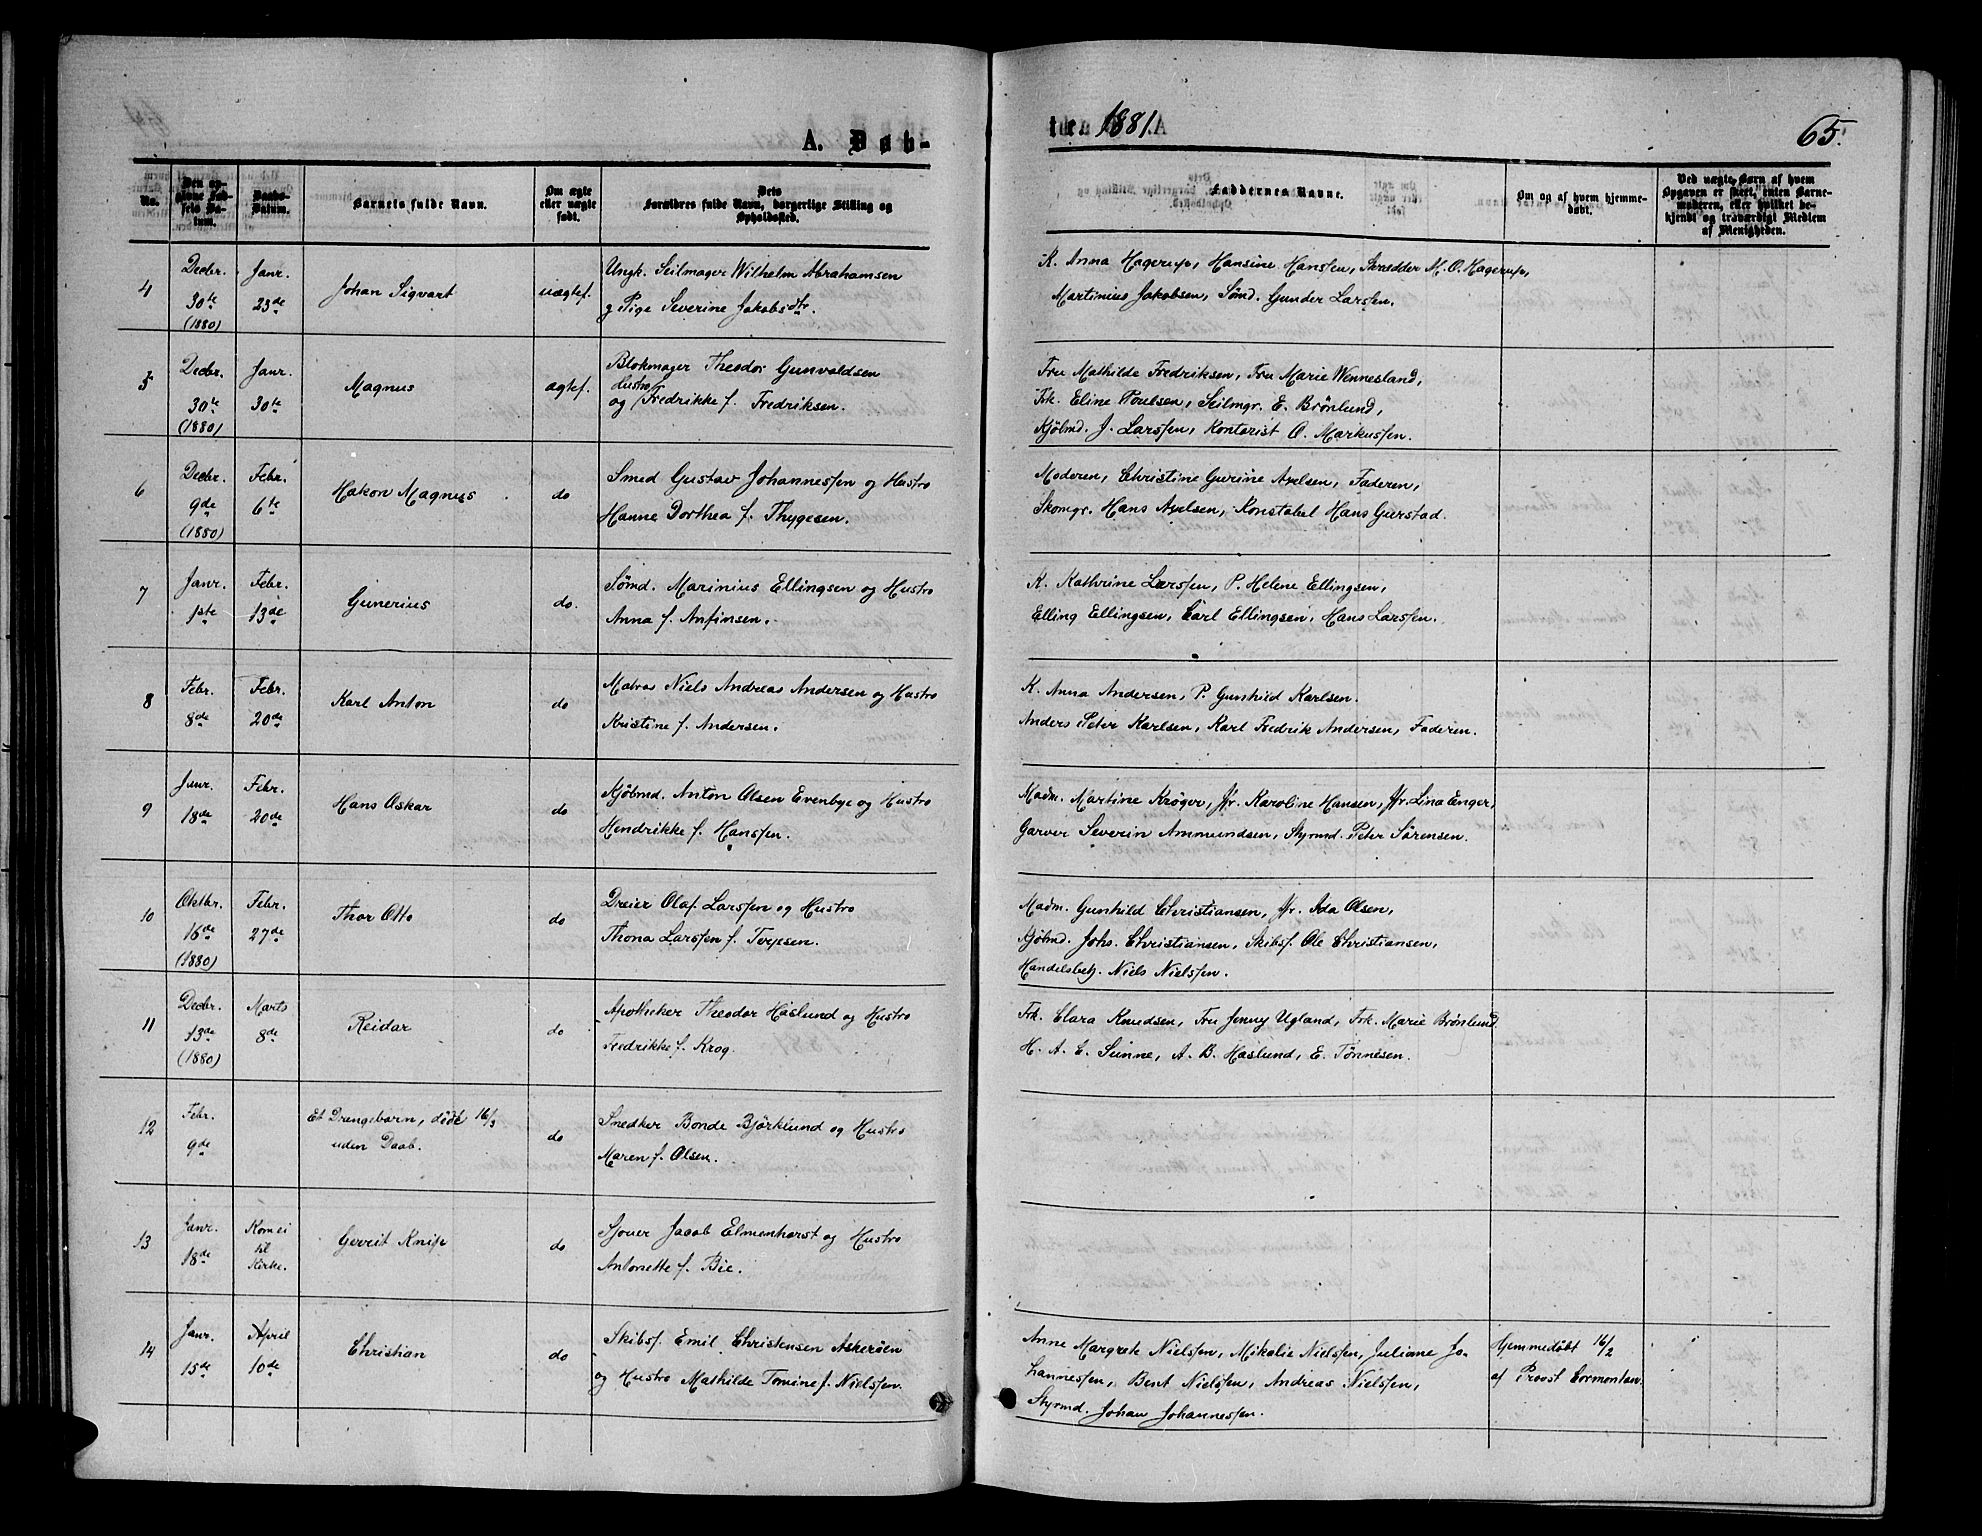 A. Døb-
te n 1881.
65.
No.
Den op-
givne Fød-
sels Da-
tum.
Daabs-
Datum.
Barnets fulde Navn.
Om ægte
eller uægte
født.
Dets
Forældres fulde Navn, borgerlige Stilling og
Opholdssted.
Faddernes Navne.
Om og af hvem hjemme-
døbt.
Ved uægte Børn af hvem
Opgaven er skeet, enten Barne-
moderen, eller hvilket be-
kjendt og troværdigt Medlem
af Menigheden.
4
Decbr.
30te
(1880)
Janr.
23de
Johan Sigvart
uægtef.
Ungk. Seilmager Wilhelm Abrahamsen
og Pige Severine Jakobsdtr.
K. Anna Hagerup, Hansine Hanssen, Skrædder M. O. Hagerup,
Martinius Jakobsen, Sømd. Gunder Larssen.
5
Decbr.
30te
(1880)
Janr.
30te
Magnus
ægtef.
Blokmager Theodor Gunvaldsen
Hustro
og Fredrikke f. Fredriksen.
Fru Mathilde Fredriksen, Fru Marie Wennesland,
Frk. Eline Poulsen, Seilmgr. E. Brønlund,
Kjøbmd. J. Larssen, Kontorist O. Markussen.
6
Decbr.
9de
(1880)
Febr.
6te
Hakon Magnus
do
Smed Gustav Johannessen og Hustro
Hanne Dorthea f. Thygesen.
Moderen, Christine Gurine Axelsen, Faderen,
Skomgr. Hans Axelsen, Konstabel Hans Gjerstad.
7
Janr.
1ste
Febr.
13de
Gunerius
do.
Sømd. Marinius Ellingsen og Hustro
Anna f. Anfinsen.
K. Kathrine Larssen, P. Helene Ellingsen,
Elling Ellingsen, Carl Ellingsen, Hans Larssen.
8
Febr.
8de
Febr.
20de
Karl Anton
do
Matros Niels Andreas Andersen og Hustro
Kristine f. Andersen.
K. Anna Andersen, P. Gunhild Karlsen.
Anders Peter Karlsen, Karl Fredrik Andersen, Faderen.
9
Janr.
18de
Febr.
20de
Hans Oskar
do
Kjøbmd. Anton Olsen Evenbye og Hustro
Hendrikke f. Hanssen.
Madm. Martine Krøger, Jfr. Karoline Hansen, Jfr. Lina Enger,
Garver Severin Ammundsen, Styrmd. Peter Sørensen.
10
Oktbr.
16de
(1880)
Febr.
27de
Thor Otto
do
Dreier Olaf Larssen og Hustro
Thona Larssen f. Terjesen.
Madm. Gunhild Christiansen, Jfr. Ida Olsen,
Kjøbmd. Johs. Christiansen, Skibsf. Ole Christiansen,
Handelsbetj. Niels Nielssen.
11
Decbr.
13de
(1880)
Marts
8de
Reidar
do
Apotheker Theodor Haslund og Hustro
Fredrikke f. Krog.
Frk. Clara Knudsen, Fru Jenny Ugland, Frk. Marie Brønlund
H. A. E. Sunne, A. B. Haslund, E. Tønnesen.
12
Febr.
9de
Et Drengebarn, døde 16/3
uden Daab.
do
Snedker Bonde Bjørklund og Hustro
Maren f. Olsen.
13
Janr.
18de
Kom ei
til
Kirke.
Gerrit Knip
do
Sjouer Jacob Elmenhorst og Hustro
Antonette f. Bie.
14
Janr.
15de
April
10de
Christian
do
Skibsf. Emil Christensen Askerøen
og Hustro Mathilde Tomine f. Nielssen.
Anne Margrete Nielssen, Mikalie Nielssen, Juliane Jo-
hannessen, Bent Nielssen, Andreas Nielssen,
Styrmd. Johan Johannessen.
Hjemmedøbt 16/2
af Provst Cormontan.